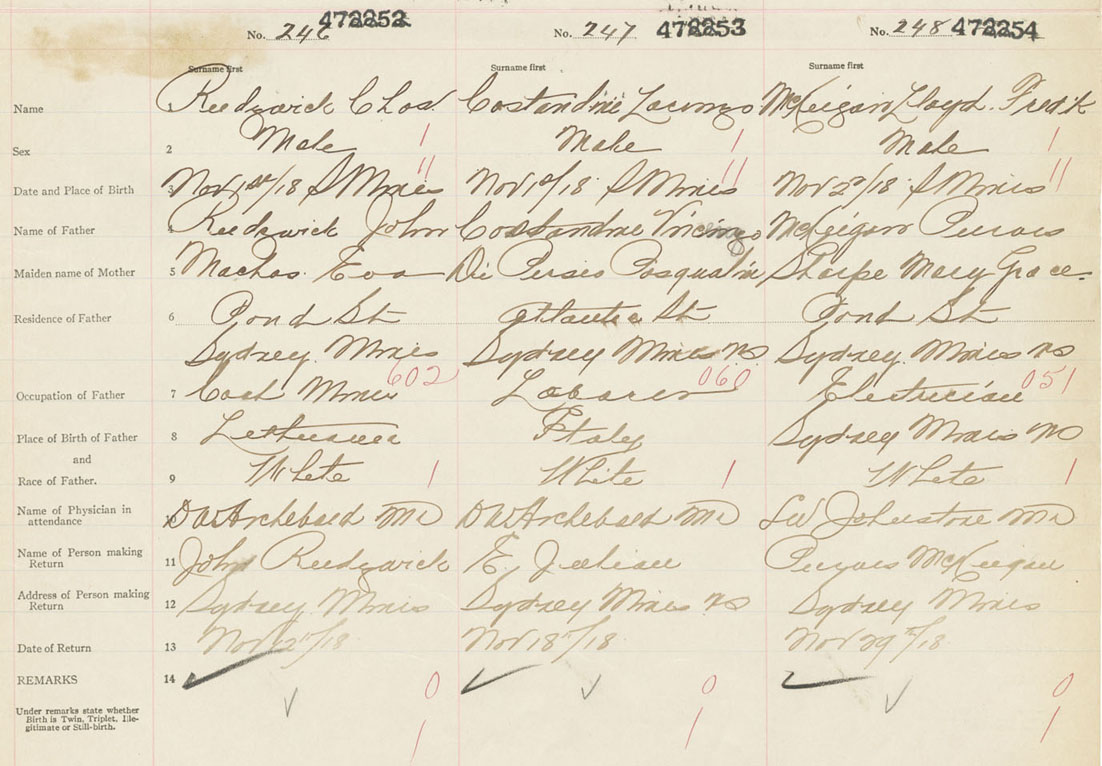 No. 246 472252 No. 247 472253 No. 248 472254
Surname first Surname first Surname first
Name Reedzwick Chas. Costandine Lorenzo McKeigan Lloyd. Fredik
Sex 2 Male 1 Male 1 Male 1
11 11 11
Date and Place of Birth 3 Nov 1st/18 S Mines Nov 1st/18 S Mines Nov 2nd/18 S Mines
Name of Father 4 Reedzwick John Costandine Vincinzo McKeigan Purves
Maiden name of Mother 5 Machas Eva Di Persis Pasqualin Sharpe Mary Grace.
Residence of Father 6 Pond St Atlantic St. Pond St
Sydney Mines Sydney Mines NS Sydney Mines NS
602 060 051
Occupation of Father 7 Coal Miner Laborer Electrician
Place of Birth of Father 8 Lethuania Italy Sydney Mines NS
and
Race of Father. 9 White 1 White 1 White 1
Name of Physician in
attendance D W Archebald MD D W Archebald MD LW Johnstone MD
Name of Person making
Return 11 John Reedzwick E. Julian Purves McKeigan
Address of Person making
Return 12 Sydney Mines Sydney Mines NS Sydney Mines
Date of Return 13 Nov /18 Nov 18th/18 Nov 29th/18
REMARKS 14 0 0 0
Under remarks state whether
Birth is Twin, Triplet, Ille-
gitimate or Still-birth.
1 1 1